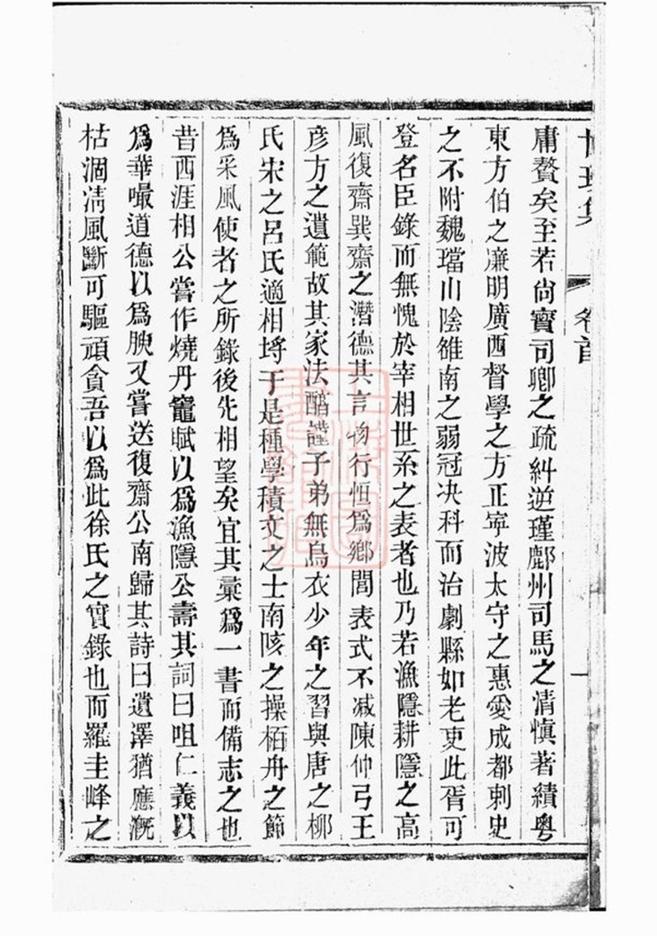 卷首
一
庸贅矣至若尚寶司卿之疏糾逆瑾鄜州司馬之清慎著績粤
東方伯之廉明廣西督學之方正寧波太守之惠愛成都刺史
之不附魏璫山陰雒南之弱冠决科而治劇縣如老吏此胥可
登名臣錄而無愧於宰相世系之表者也乃若漁隱耕隱之高
風復齋巽齋之潛德其言物行恒爲鄉閭表式不减陳仲弓王
彦方之遺範故其家法醇謹子弟無烏衣少年之習與唐之柳
氏宋之呂氏適相埒于是種學積文之士南陔之操栢舟之節
爲采風使者之所錄後先相望矣宜其彙爲一書而備志之也
昔西涯相公嘗作燒丹竈賦以爲漁隱公壽其詞曰咀仁義以
爲華嘬道德以爲腴又嘗送復齋公南歸其詩曰遺澤猶應漑
枯涸淸風斷可驅頑貪吾以爲此徐氏之實錄也而羅圭峰之